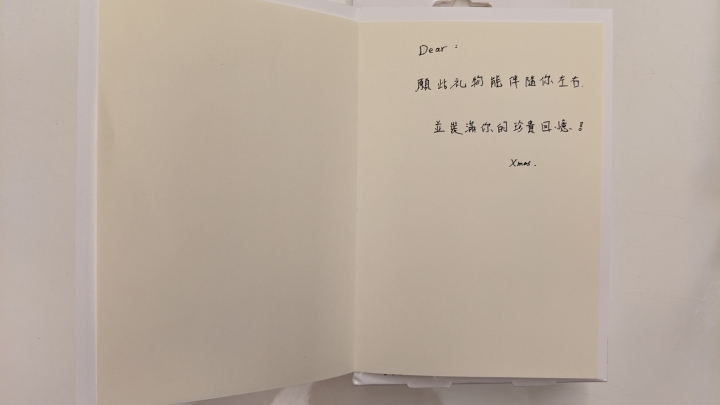 Dear :
願此礼物能伴隨你左右.
並裝滿你的珍貴回憶.!!
Xmas.